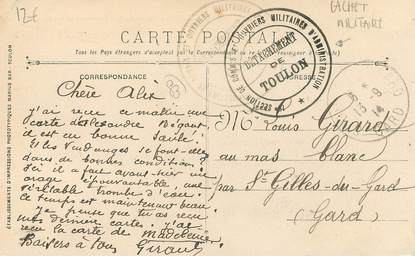 12€
CACHET
MILITAIRE
CARTE POSTALE
Tous les Pays étrangers n'acceptent pas la Correspondance au
CORRESPONDANCE
ADRESSE
OUVRIERS MILITAIRES D'ADMINISTRATION
DÉTACHEMENT
DE
TOULON
SECTION DE COMMIS
ÉTABLISSEMENTS D'IMPRESSIONS PHOTOTYPIQUES MARIUS BAR, TOULON
Chère Alix
j'ai reçu ce matin une
carte d'alexandre Bégaut,
il est en bonne santé!
Et les Vendanges se font-elles
dans de bonnes conditions?
Ici il a fait avant-hier un
orage épouvantable, une
véritable trombe d'eau.
Le temps est maintenant beau
je pense que tu as reçu
mes dernières cartes. J'ai
reçu la carte de Madeleine.
Baisers à tous Giraud
Mr Louis Girard
au mas blanc
par St Gilles-du-Gard
(Gard)